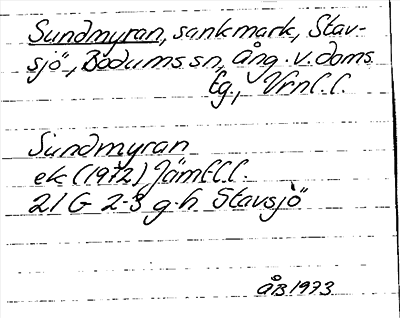 Sundmyran, sankmark, Stav-
sjö, Bodums sn, Ång. v. doms
tg., Vrnl. l.
Sundmyran
ek (1972) Jämtl.l.
21 G 2-3 g-h Stavsjö
ÅB 1973